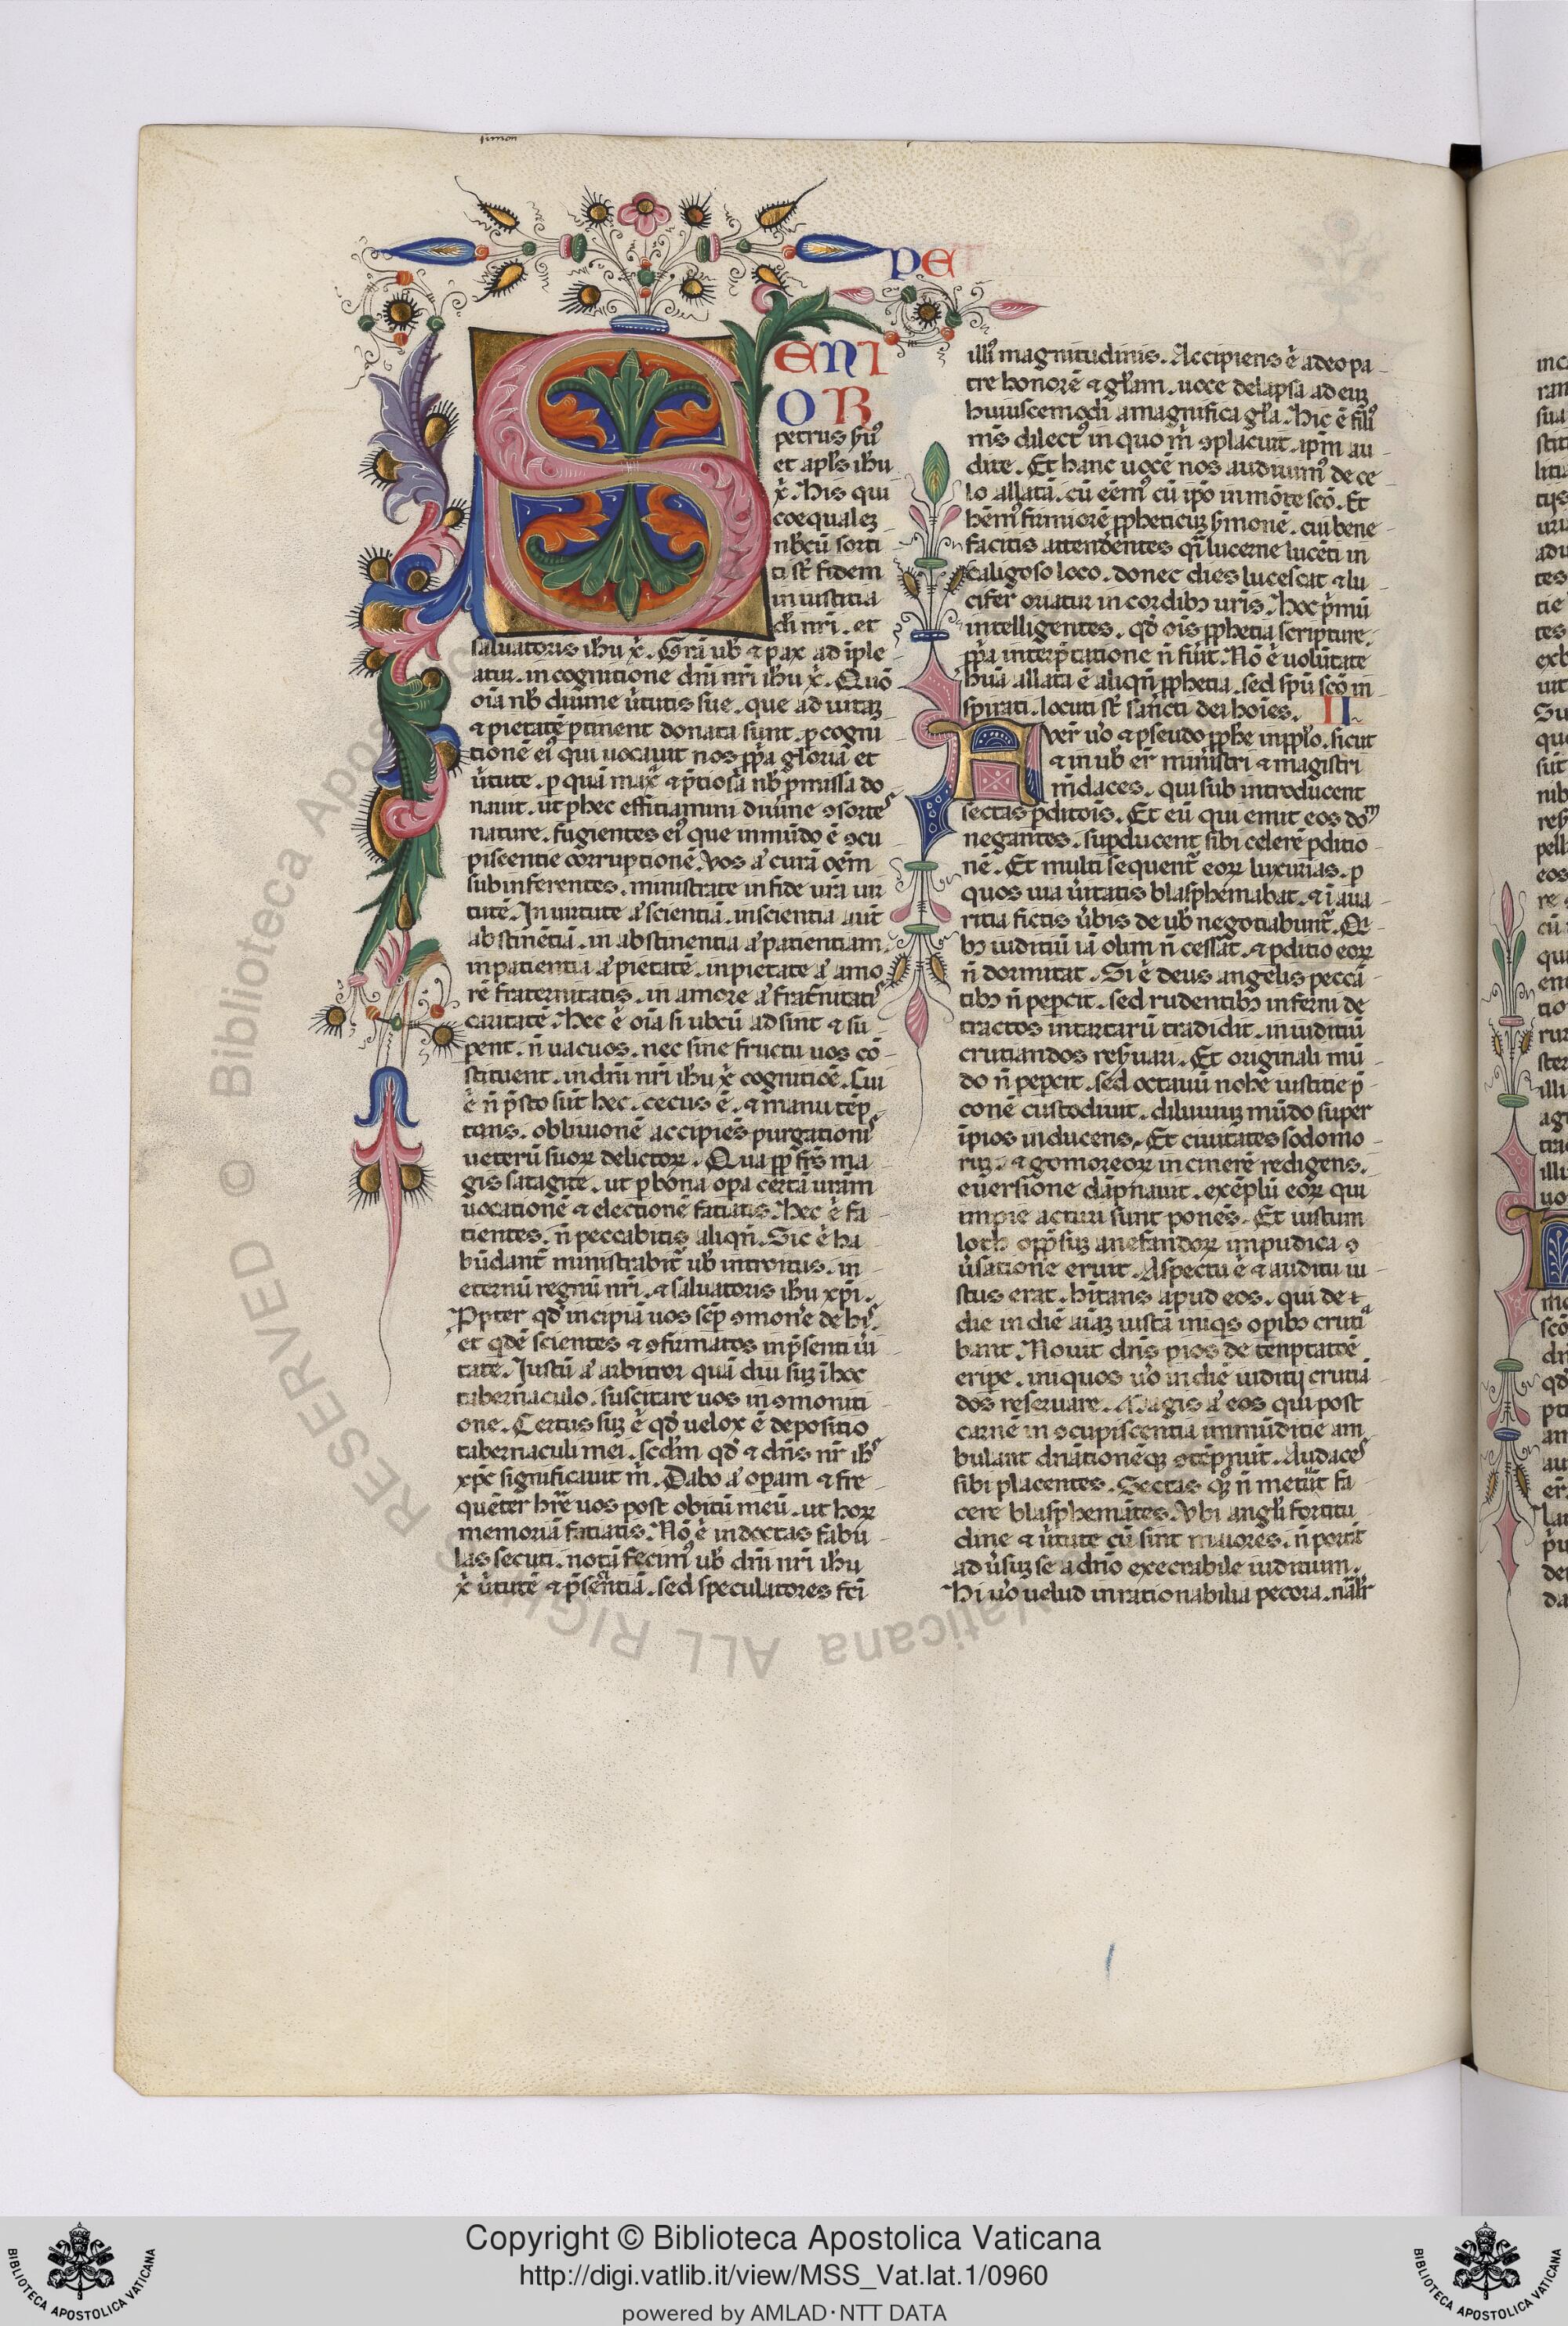 simon
PE
SENI
OR
petrus ẜuꝰ
et apl̄s ih̄u
x̄. His qui
coequalez
nb̄cū sorti
ti st̄ fidem
in iustitia
di nr̄i. et
saluatoris ih̄u x̄. Grā ub̄ ⁊ pax adīple
atur. in cognitione dn̄i nr̄i ih̄u x̄. Quō
oīa nb̄ diuine u̾tutis sue. que ad uitaꝫ
⁊ pietatē ꝑtinent donata sunt. ꝑ cogni
tionē eiꝰ qui uocauit nos ꝓpa gloriā et
u̾tute. ꝑ quā max̄ ⁊ p̄tiosa nb̄ ꝓmissa do
nauit. ut ꝑ hec efficiamini diuine ꝯsortes
nature. fugientes eiꝰ que in mūdo ē ꝯcu
piscentie corruptionē. Vos a̾ curā oēm
subinferentes. ministrate in fide ur̄a uir
tutē. In uirtute a̾ scientiā. in scientia aut̄
abstinētiā. in abstinentia a̾ patientiam.
in patientia a̾ pietatē. in pietate a̾ amo
rē fraternitatis. in amore a̾ frat̄nitatis
caritatē. Hec .e̾. oīa si ubcū adsint ⁊ su
pent. n̄ uacuos. nec sine fructu uos cō
stituent. in dn̄i nr̄i ih̄u x̄ cognitiōe. Cui
.e̾. n̄ p̄sto sūt hec. cecus ē. ⁊ manu tēp
tans. obliuionē accipiēs purgationis
ueterū suoꝝ delictoꝝ. Quapp̄ fr̄s ma
gis satagite. ut ꝑ bona opa certā ur̄am
uocationē ⁊ electionē fatiatis. Hec .e̾. fa
tientes. n̄ peccabitis aliqn̄. Sic .e̾. ha
būdant̄ ministrabit̄ ub̄ introitus. in
eternū regnū nr̄i. ⁊ saluatoris ih̄u xp̄i.
Ꝓpter qd̄ incipiā uos sēp ꝯmonē de his.
et qdē scientes ⁊ ꝯfirmatos in p̄senti u̾i
tate. Iustū a̾ arbitror quā diu suꝫ ī hoc
tabernaculo. suscitare uos in ꝯmoniti
one. Certus suꝫ .e̾. qd̄ uelox ē depositio
tabernaculi mei. scdm̄ qd̄ ⁊ dn̄s nr̄ ih̄s
xp̄c significauit m̄. Dabo a̾ opam ⁊ fre
quēter hr̄e uos post obitū meū. ut hoꝝ
memoriā fatiatis. Nō .e̾. indoctas fabu
las secuti. notā fecimꝰ ub̄ dn̄i nr̄i ih̄u
x̄ u̾tutē ⁊ p̄sentiā. sed speculatores fc̄i
illiꝰ magnitudinis. Accipiens .e̾. a deo pa
tre honorē ⁊ gl̄am. uoce delapsa ad euꝫ
huiuscemodi a magnifica gl̄a. Hic ē filiꝰ
mS dilectꝰ in quo m̄ ꝯplacuit. ip̄m au
dite. Et hanc uocē nos audiuimꝰ de ce
lo allatā. cū eēmꝰ cū ip̄o in mōte scō. Et
hēmꝰ firmiorē ꝓpheticuꝫ ẜmonē. cui bene
facitis attendentes q̄i lucerne lucēti in
caligoso loco. donec dies lucescat ⁊ lu
cifer oriatur in cordibꝫ ur̄is. Hoc p̄mū
intelligentes. qd̄ oīs ꝓphetia scripture.
ꝓpa interp̄tatione n̄ fiūt. Nō .e̾. uolūtate
huā allata ē aliqn̄ ꝓphetia. sed spū scō in
spirati. locuti st̄ sancti dei hoīes. II
Fuer̄ u̾o ⁊ pseudo ꝓphe in pplo. sicut
⁊ in ub̄ er̄ministri ⁊ magistri
m̄daces. qui sub introducent
sectas ꝑditōis. Et eū qui emit eos dom̄
negantes. supducent sibi celerē ꝑditio
nē. Et multi sequent̄ eoꝝ luxurias. ꝑ
quos uia u̾itatis blasphemabat. ⁊ ī aua
ritia fictis u̾bis de ub̄ negotiabunt̄. Qi
bꝫ iuditiū iā olim n̄ cessat. ⁊ ꝑditio eoꝝ
n̄ dormitat. Si .e̾. deus angelis peccā
tibꝫ n̄ peꝑcit. sed rudentibꝫ inferni de
tractos in tartarū tradidit. in iuditiū
crutiandos reẜuari. Et originali mū
do n̄ peꝑcit. sed octauū nohe iustitie p̄
conē custodiuit. diluuiuꝫ mūdo super
īpios inducens. Et ciuitates sodomo
ruꝫ. ⁊ gomoreoꝝ in cinerē redigens.
euersione dāpnauit. exēplū eoꝝ qui
impie acturi sunt ponēs. Et iustum
loth opp̄suꝫ a nefandoꝝ impudica ꝯ
u̾satione eruit. Aspectu .e̾. ⁊ auditu iu
stus erat. hītans apud eos. qui de
die in diē aīaꝫ iustā iniqs opibꝫ crutia
bant. Nouit dn̄s pios de temptatōe
eripe. iniquos u̾o in diē iuditij crutiā
dos reseruare. Magis a̾ eos qui post
carnē in ꝯcupiscentia immūditie am
bulant dn̄ationēqꝫ ꝯtēpnūt. Audaces
sibi placentes. Sectas qꝫ n̄ metūt fa
cere blasphemātes. Vbi angl̄i fortitu
dine ⁊ u̾tute cū sint maiores. n̄ portāt
ad u̾suꝫ se a dn̄o execrabile iuditium.
Hi u̾o uelud inrationabilia pecora. nālr̄
Copyright © Biblioteca Apostolica Vaticana
http://digi.vatlib.it/view/MSS_Vat.lat.1/0960
powered by AMLAD·NTT DATA
BIBLIOTECA APOSTOLICA VATICANA
BIBLIOTECA APOSTOLICA VATICANA
© Biblioteca Apostolica Vaticana ALL RIGHTS RESERVED